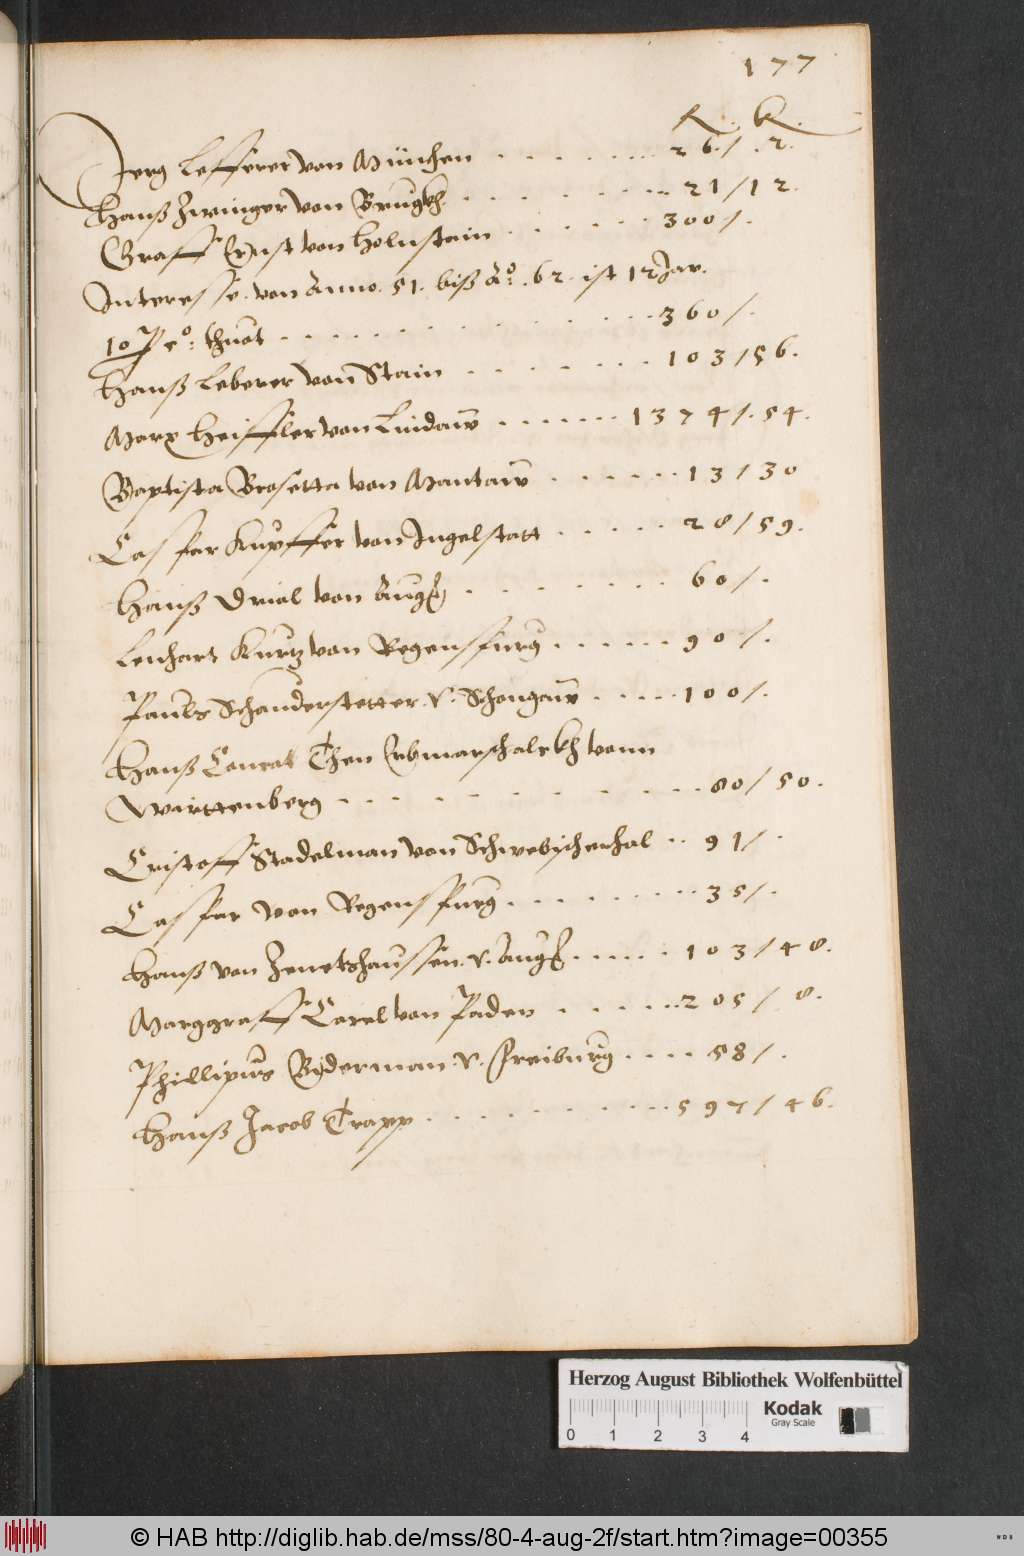 177
R. K.
Jerg Lefferer von München . . . . . . . 26 /. 2.
Hanß Zwinger von Brugkh . . . . . . . 21 / 12.
Graff Ernst von Holnstain . . . . . . 300 /.
Interesse. von Anno. 51. biß Aº. 62. ist 12 Jar.
10 P cº: thuot . . . . . . . . . . . 360 /.
Hanß Leberer von Stain . . . . . . . 103 / 56.
Marx Heiffler von Lindaw . . . . . . . 1374 /. 54.
Baptista Brosetta von Mantaw . . . . . . 13 / 30
Casspar Kupffer von Ingelstatt . . . . . 28 / 59.
Hanß Driol von Augspurg . . . . . . . 60 /.
Lenhart Kurtz von Regenspurg . . . . . . 90 /.
Pauls Schanderstetter. v. Schongaw . . . . . 100 /.
Hanß Conrat Then Erbmarschalckh vonn
Wirttenberg . . . . . . . . . . . 80 / 50.
Cristoff Stadelman von Schwebischenhal . . 91 /.
Casspar von Regenspurg . . . . . . . . 35 /.
Hanß von Zenetshaussen. v. Augspurg . . . . . 103 / 48.
Marggraff Carel von Paden . . . . . . 205 / 8.
Phillipus Biderman. v. Freiburg . . . . 58 /.
Hanß Jacob Trapp . . . . . . . . . 597 / 46.
Herzog August Bibliothek Wolfenbüttel
Kodak
Gray Scale
0 1 2 3 4
© HAB http://diglib.hab.de/mss/80-4-aug-2f/start.htm?image=00355